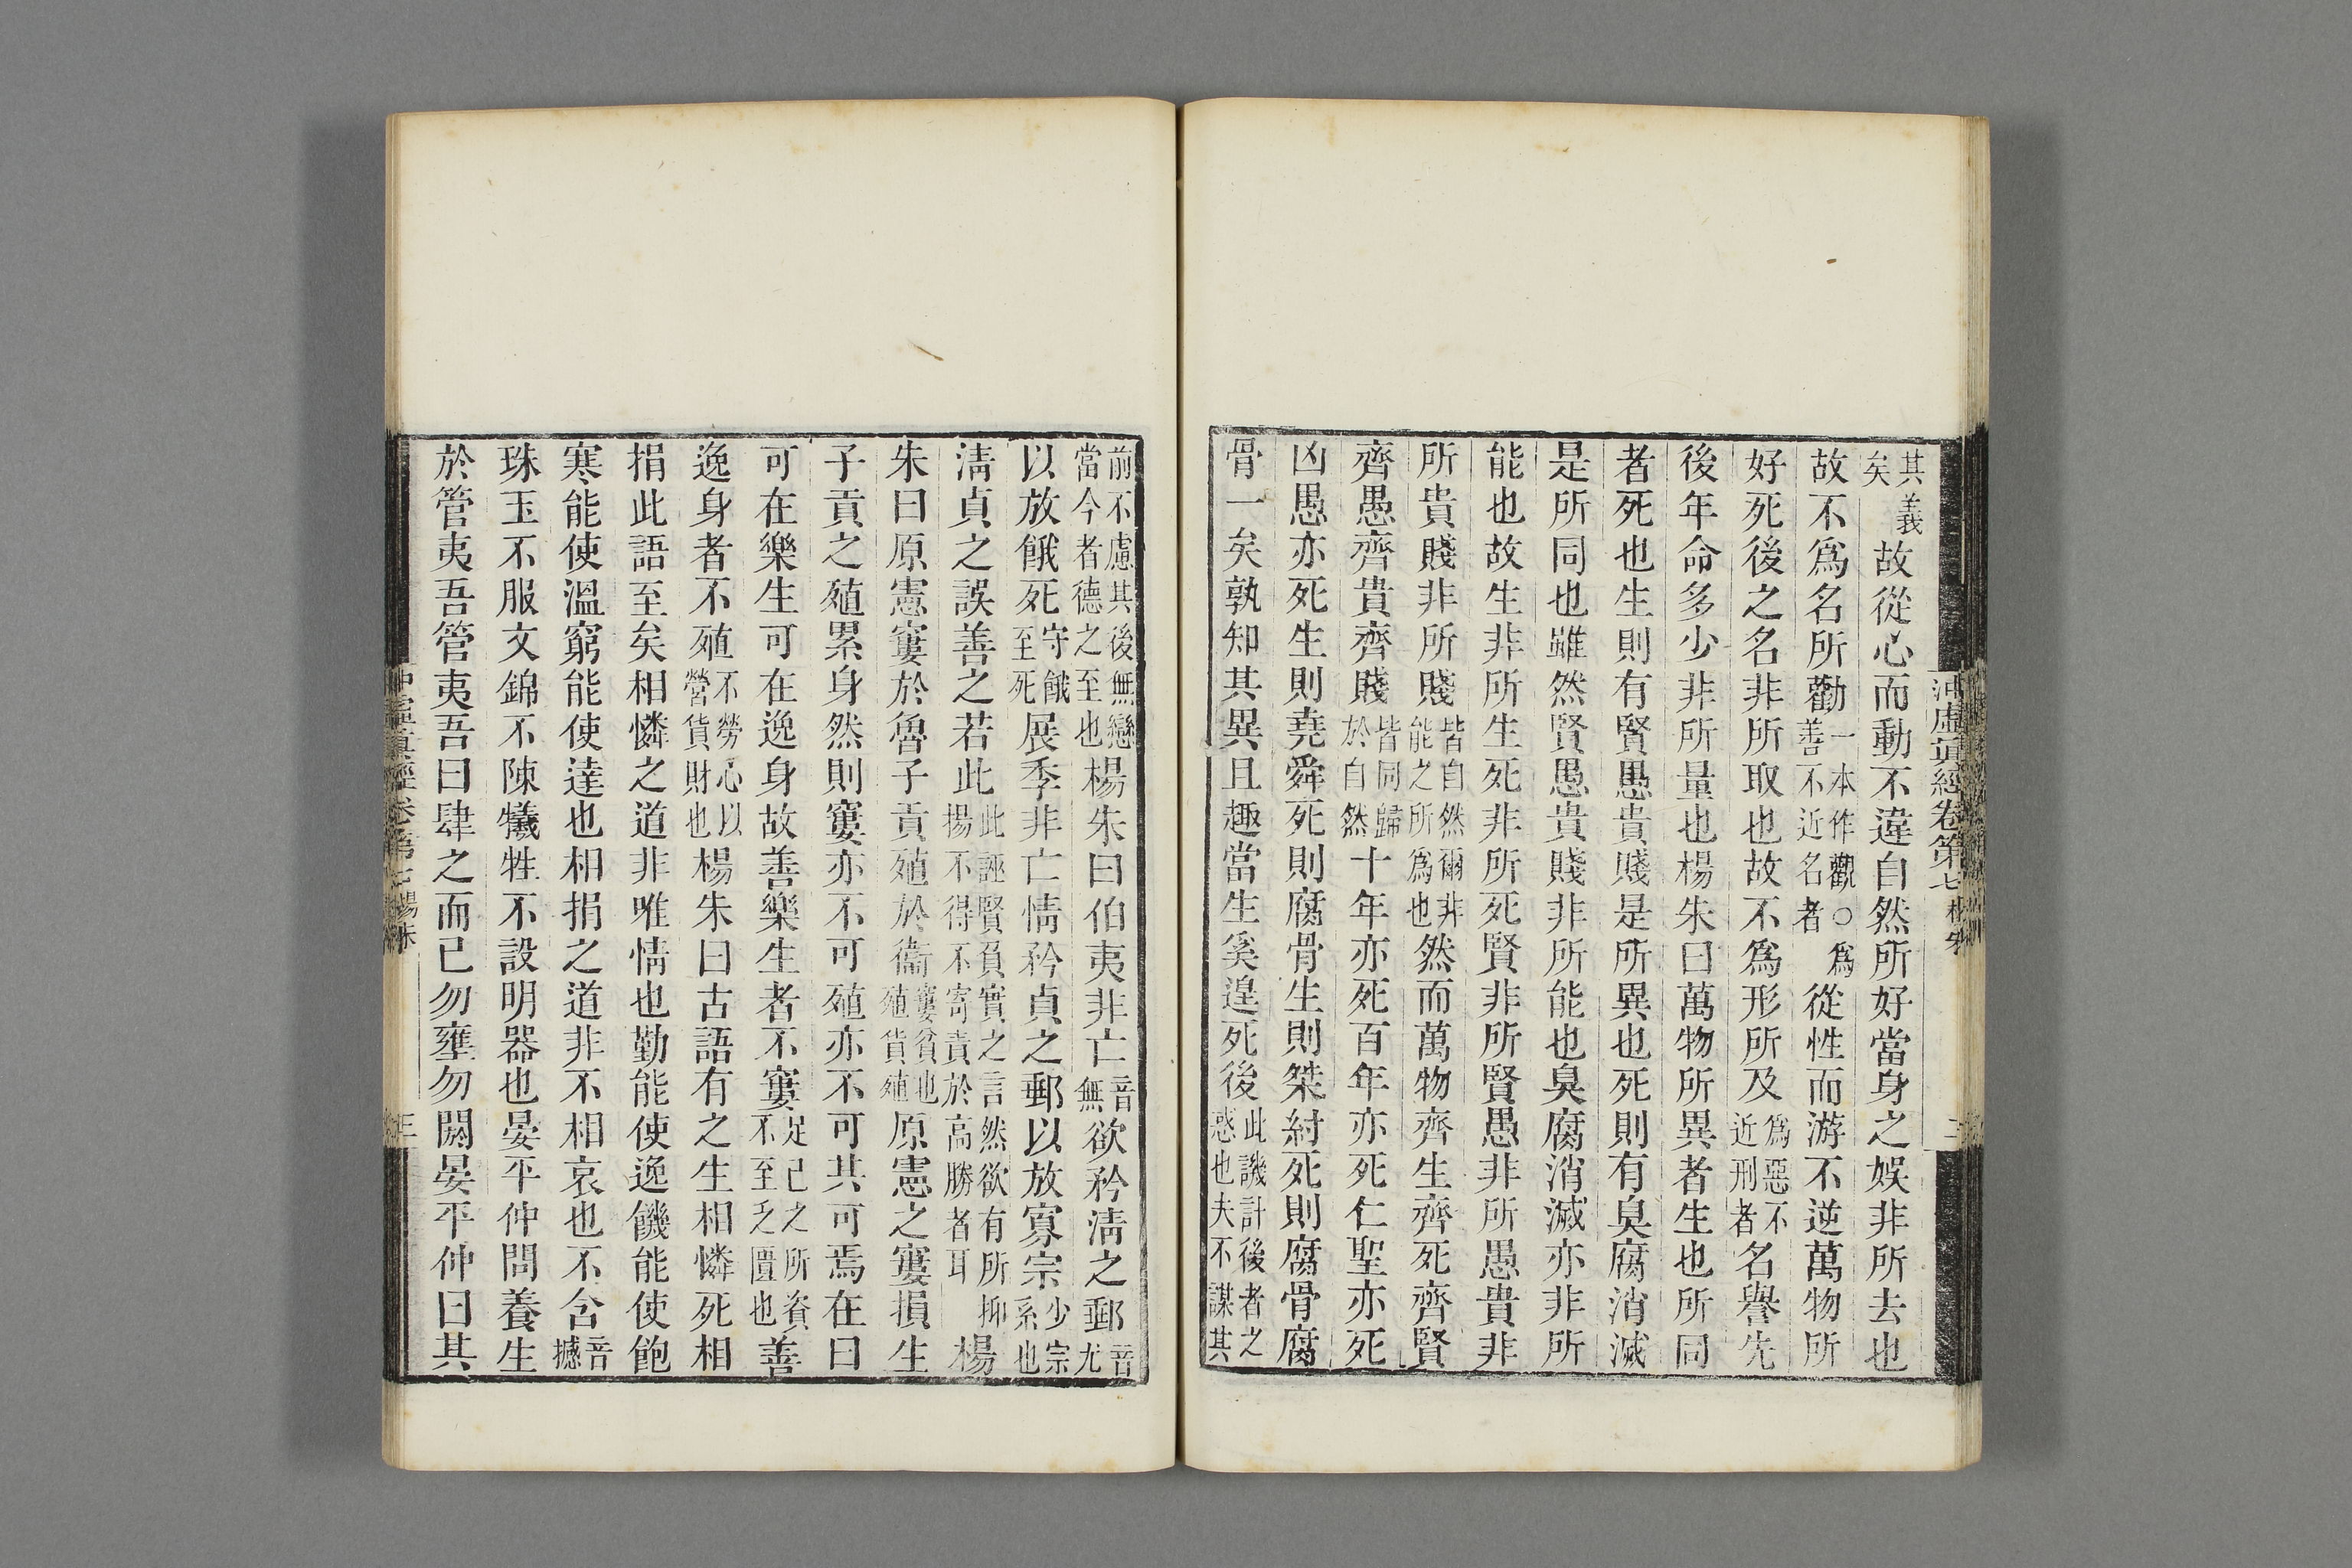 沖虛眞經卷第七 楊朱 二
其義矣故從心而動不違自然所好當身之娛非所去也
故不爲名所勸一本作觀○爲善不近名者從性而游不逆萬物所
好死後之名非所取也故不爲形所及爲惡不近刑者名譽先
後年命多少非所量也楊朱曰萬物所異者生也所同
者死也生則有賢愚貴賤是所異也死則有臭腐消滅
是所同也雖然賢愚貴賤非所能也臭腐消滅亦非所
能也故生非所生死非所死賢非所賢愚非所愚貴非
所貴賤非所賤皆自然爾非能之所爲也然而萬物齊生齊死齊賢
齊愚齊貴齊賤皆同歸於自然十年亦死百年亦死仁聖亦死
凶愚亦死生則堯舜死則腐骨生則桀紂死則腐骨腐
骨一矣孰知其異且趣當生奚遑死後此譏計後者之惑也夫不謀其
前不慮其後無戀當今者德之至也楊朱曰伯夷非亡音無欲矜淸之郵音尤
以放餓死守餓至死展季非亡情矜貞之郵以放寡宗少宗系也
淸貞之誤善之若此此誣賢負實之言然欲有所抑揚不得不寄責於高勝者耳楊
朱曰原憲窶於魯子貢殖於衞窶貧也殖貨殖原憲之窶損生
子貢之殖累身然則窶亦不可殖亦不可其可焉在曰
可在樂生可在逸身故善樂生者不窶足己之所資不至乏匱也善
逸身者不殖不勞心以營貨財也楊朱曰古語有之生相憐死相
捐此語至矣相憐之道非唯情也勤能使逸饑能使飽
寒能使溫窮能使達也相捐之道非不相哀也不含音撼
珠玉不服文錦不陳犧牲不設明器也晏平仲問養生
於管夷吾管夷吾曰肆之而已勿壅勿閼晏平仲曰其
沖虛眞經卷第七 楊朱 三